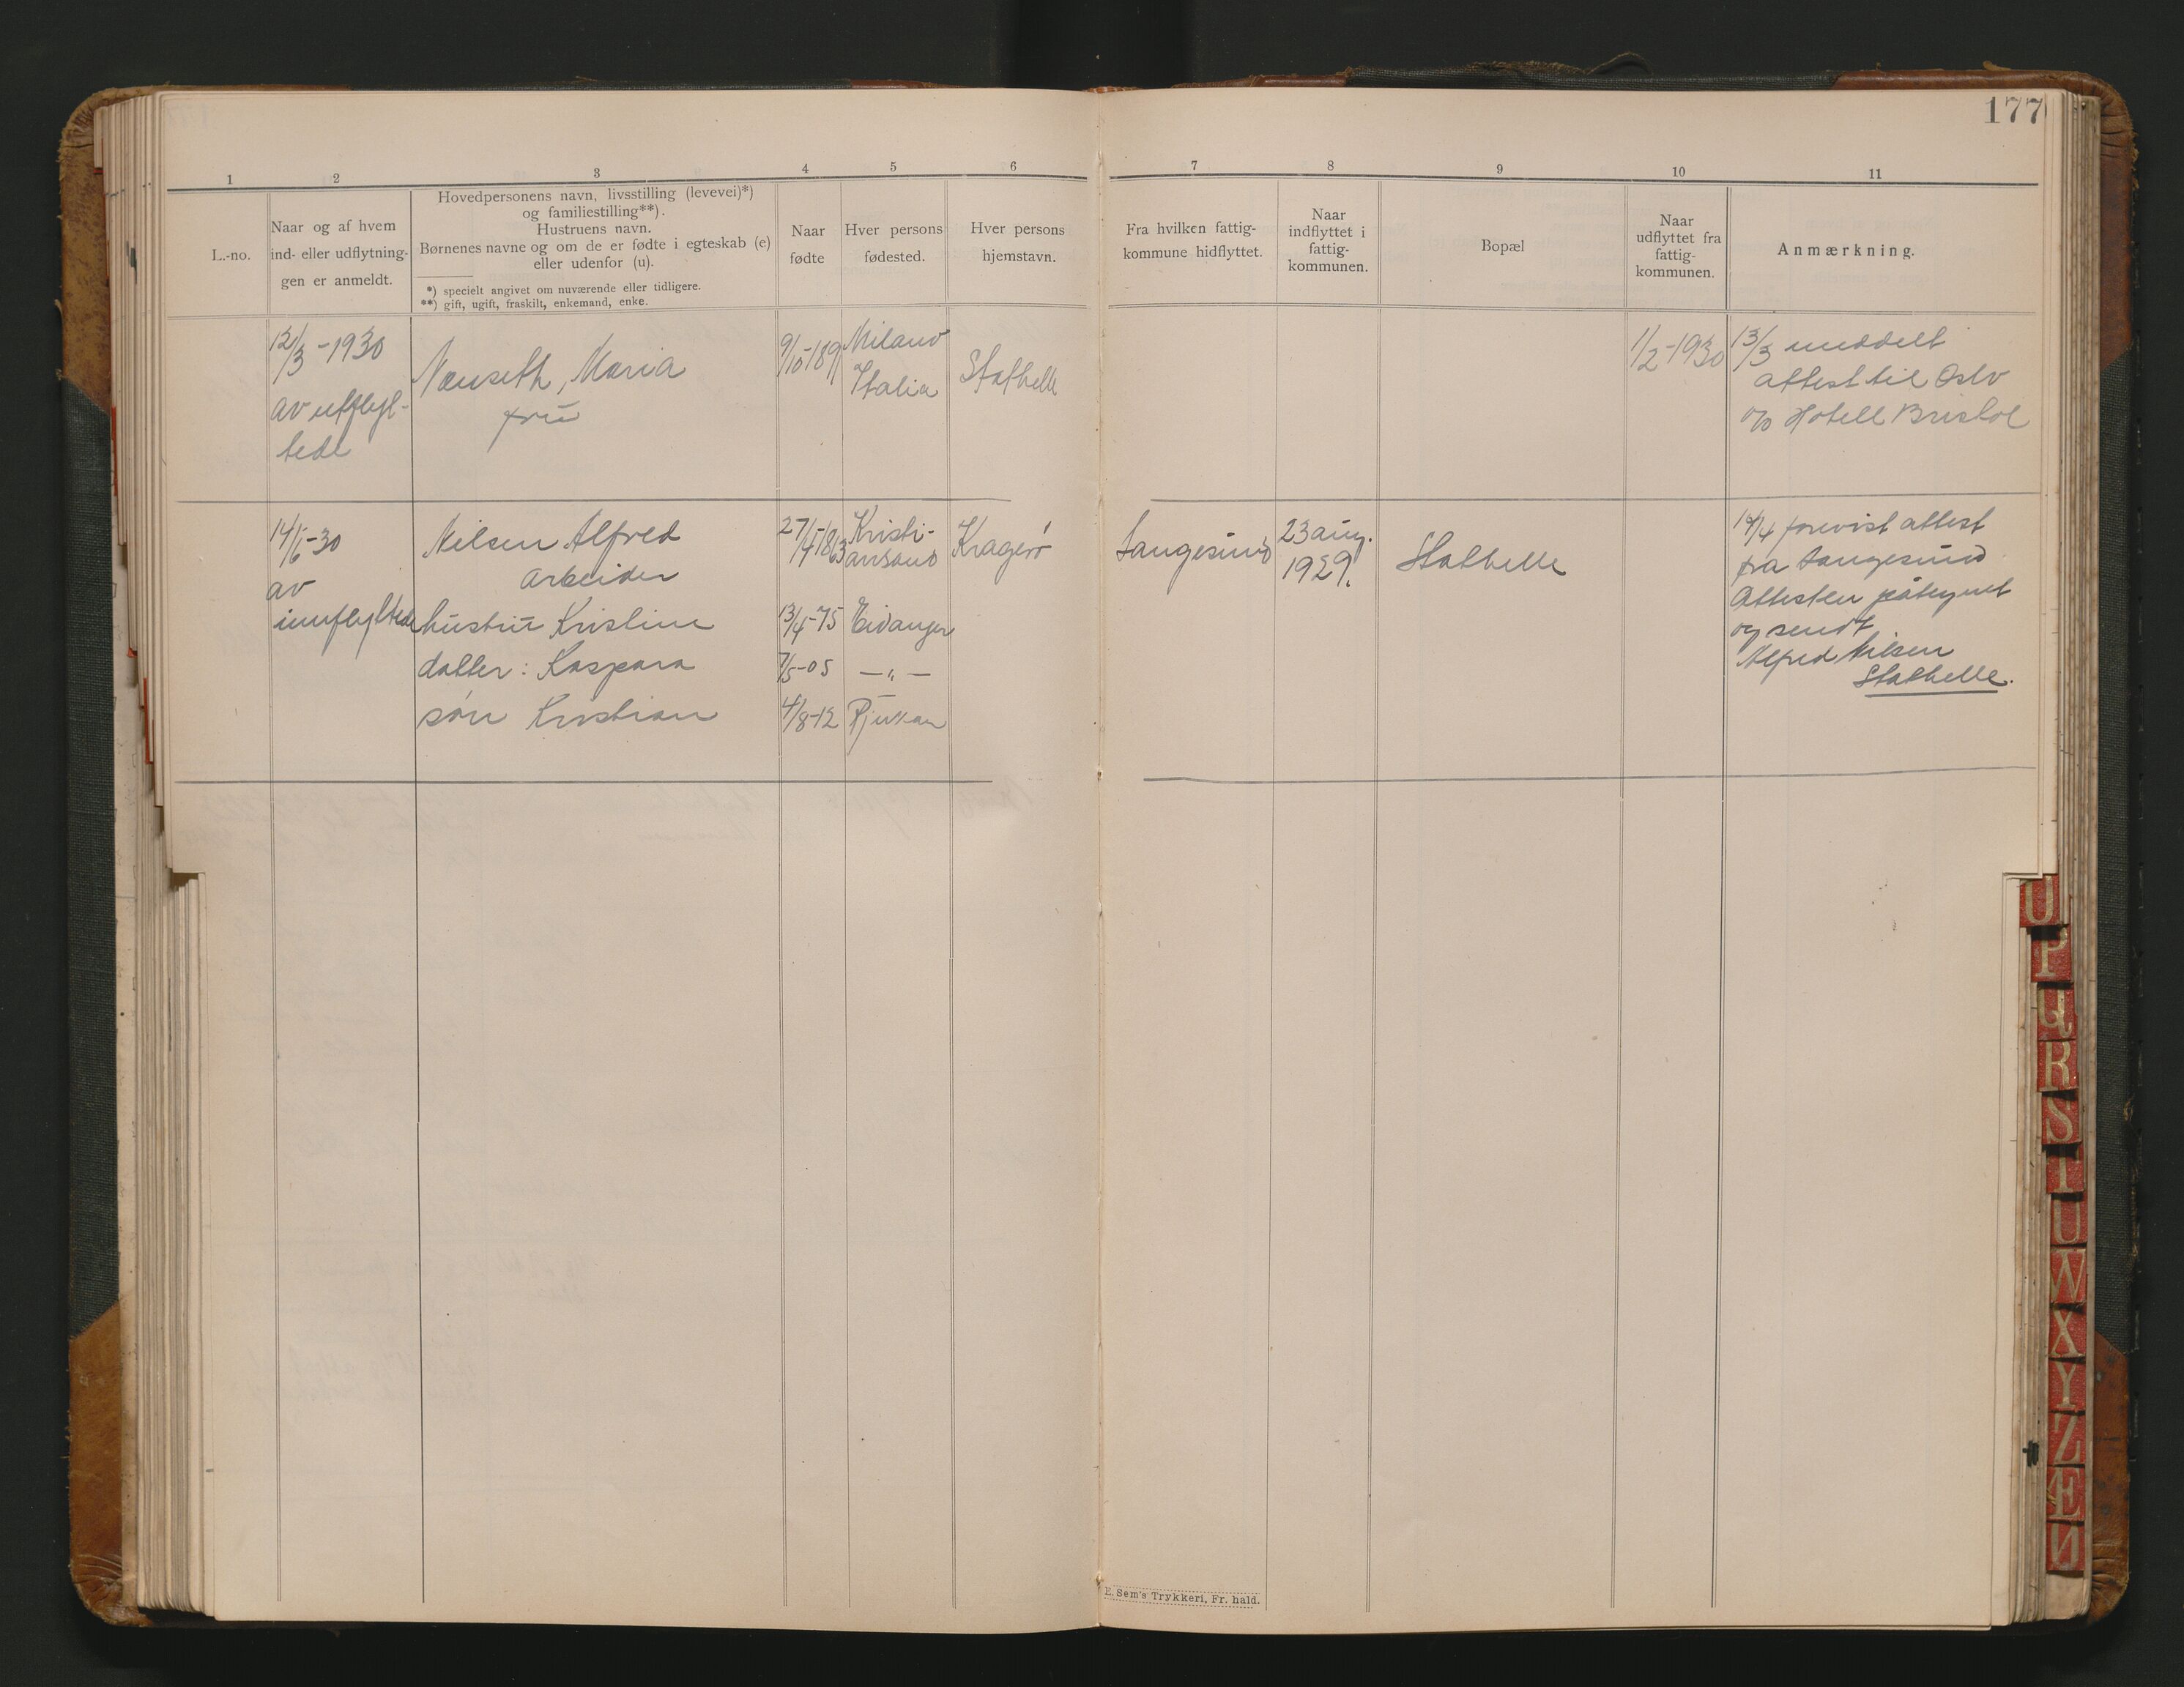 177
1 2 3 4 5 6 7 8 9 10 11
L.-no.
Naar og af hvem
ind- eller udflytnin-
gen er anmeldt.
Hovedpersonens navn, livsstilling (levevei)*)
og familiestilling**).
Hustruens navn.
Børnenes navne og om de er fødte i egteskab (e)
eller udenfor (u).
*) specielt angivet om nuværende eller tidligere.
**) gift, ugift, fraskilt, enkemand, enke.
Naar
fødte
Hver persons
fødested.
Hver persons
hjemstavn.
Fra hvilken fattig-
kommune hidflyttet.
Naar
indflyttet i
fattig-
kommunen.
Bopæl
Naar
udflyttet fra
fattig-
kommunen.
Anmærkning.
12/3-1930
av utflyt-
tede
Næuseth, Maria
frú
9/10-1891
Milano
Italia
Stathelle
1/2-1930
13/3 meddelt
attest til Oslo
o/o Hotell Bristol
14/6-30
av
innflyttede
Nilsen Alfred
Arbeider
hustrú Kristine
datter: Kaspara
sön Kristian
27/4-1863
13/4-75
7/5-05
4/8-12
Kristi-
ansand
Eidanger
—„—
Rjukan
Kragerö
Langesund
23 aug.
1929.
Stathelle
14/4 forevist attest
fra Langesund
Attesten påtegnet
og sendt
Alfred Nilsen
Stathelle.
E. Sem's Trykkeri, Fr. hald.
O
P
Q
R
S
T
U
W
X
Y
Z
Æ
Ø